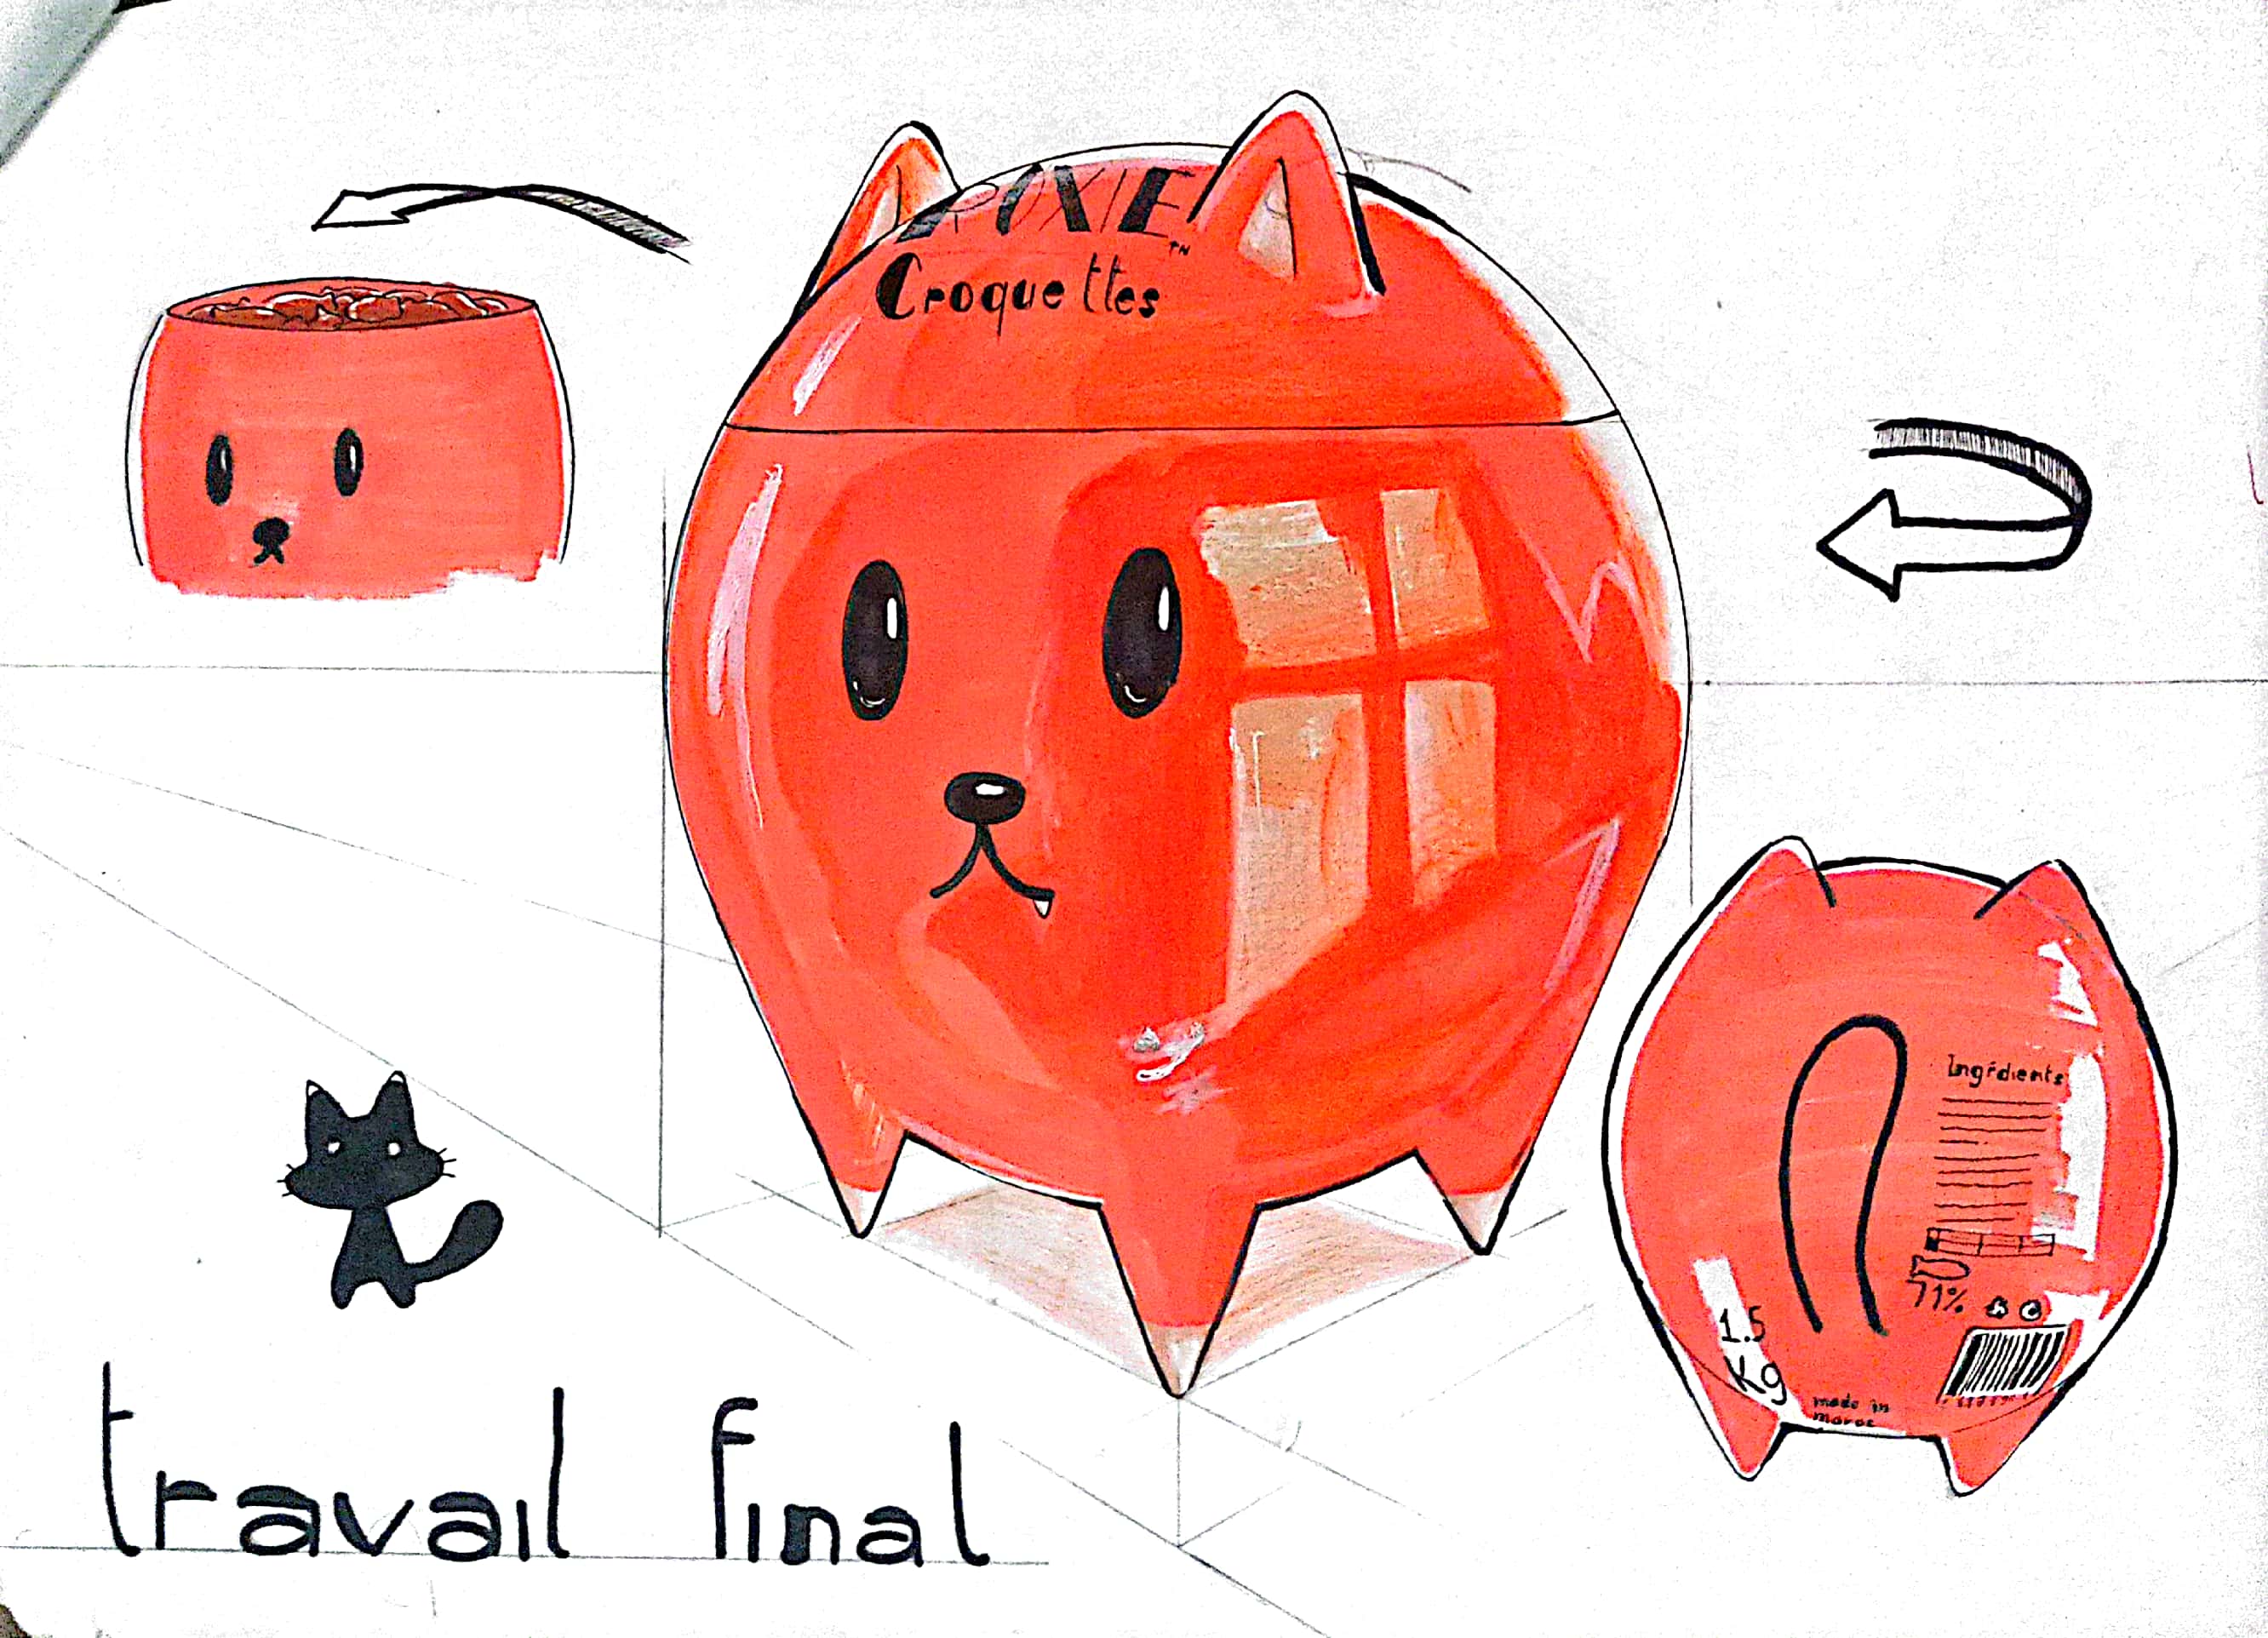 PIXIE
TM
Croquettes
Ingrédients
71%
1.5
Kg
made in
maroc
travail final